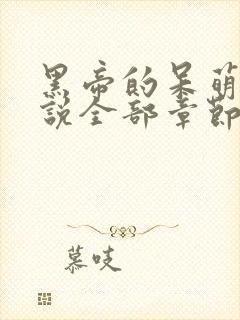 黑帝的呆萌
说全部章节
慕吱